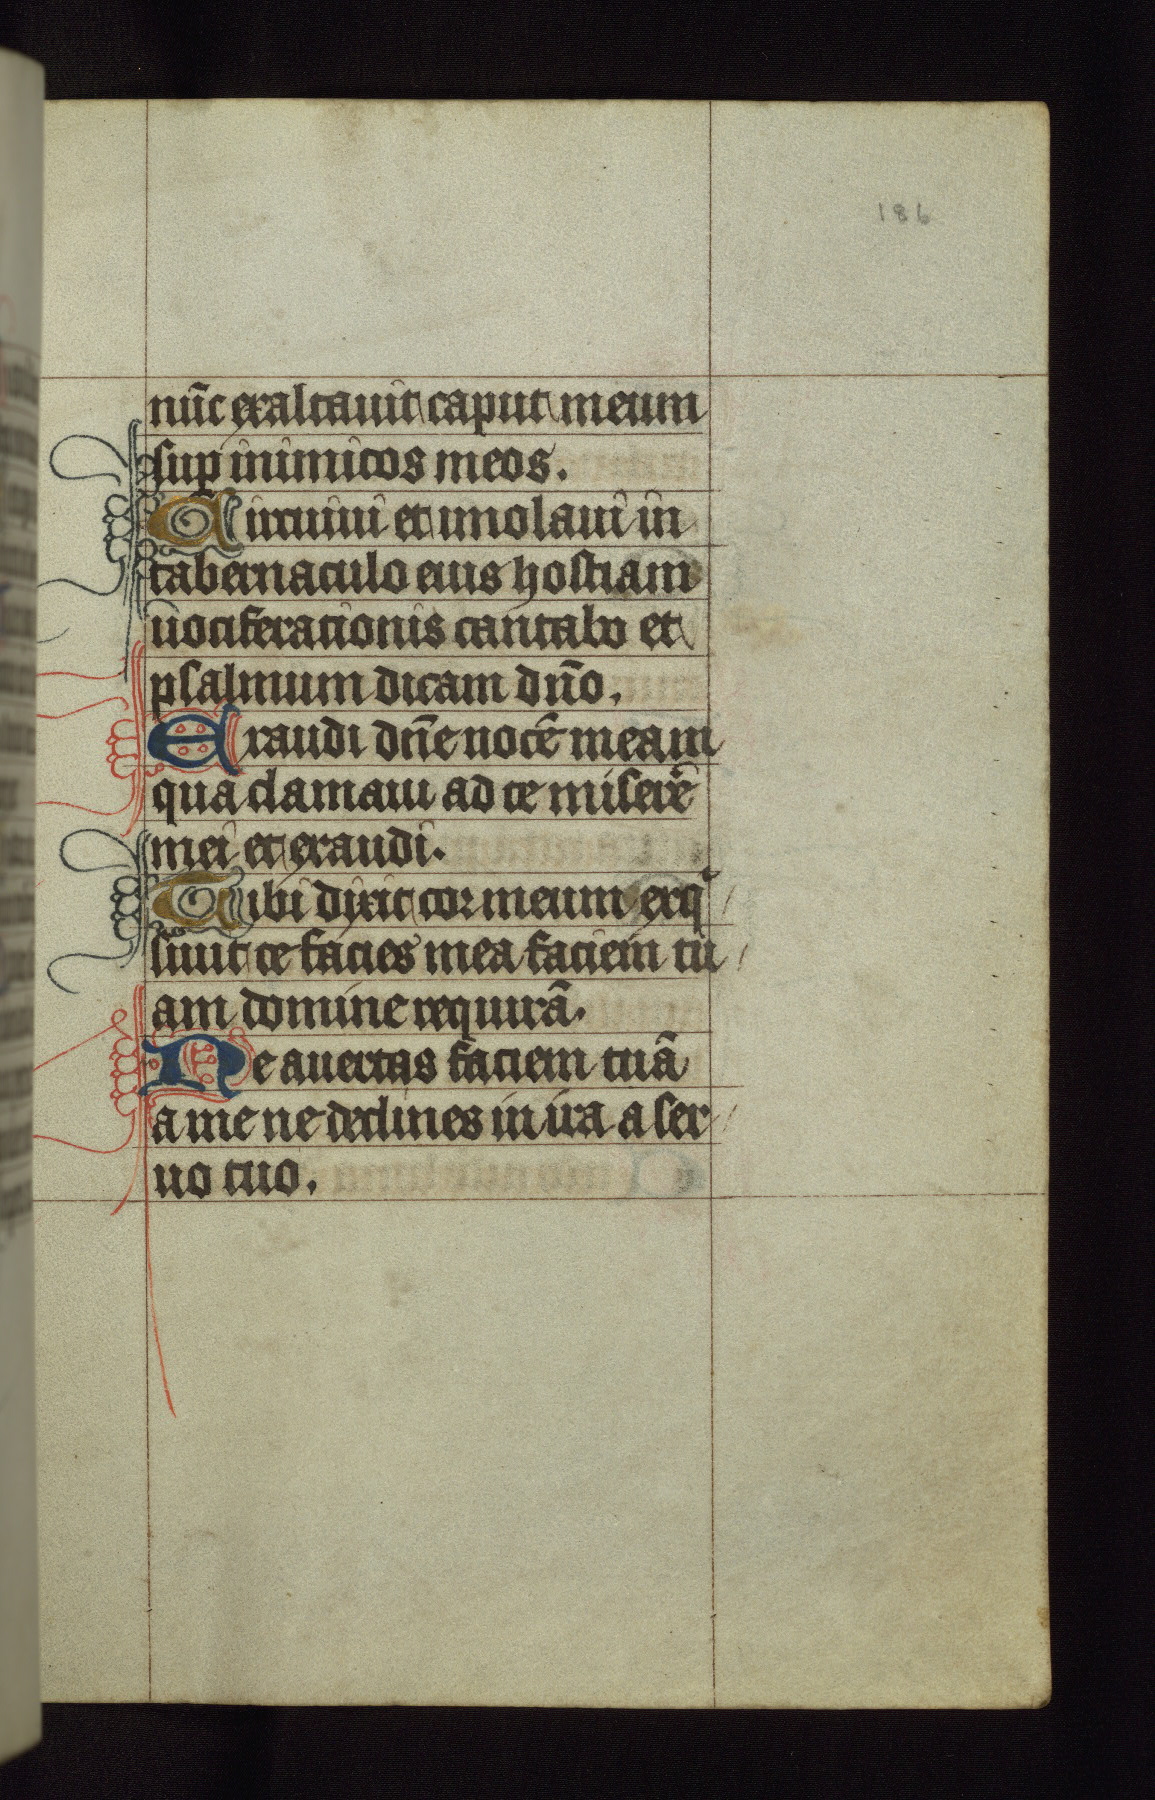 186
nūc exaltauit caput meum
suꝑ inimicos meos.
Circuiui et imolaui in
tabernaculo eius hostiam
uociferationis cantabo et
psalmum dicam dn̄o.
Exaudi dn̄e uocē meam
qua clamaui ad te miserē
mei et exaudi.
Tibi dixit cor meum exq̄
siuit te facies mea faciem tu
am domine requirā.
Ne auertas faciem tuā
a me ne declines in ira a ser
uo tuo.